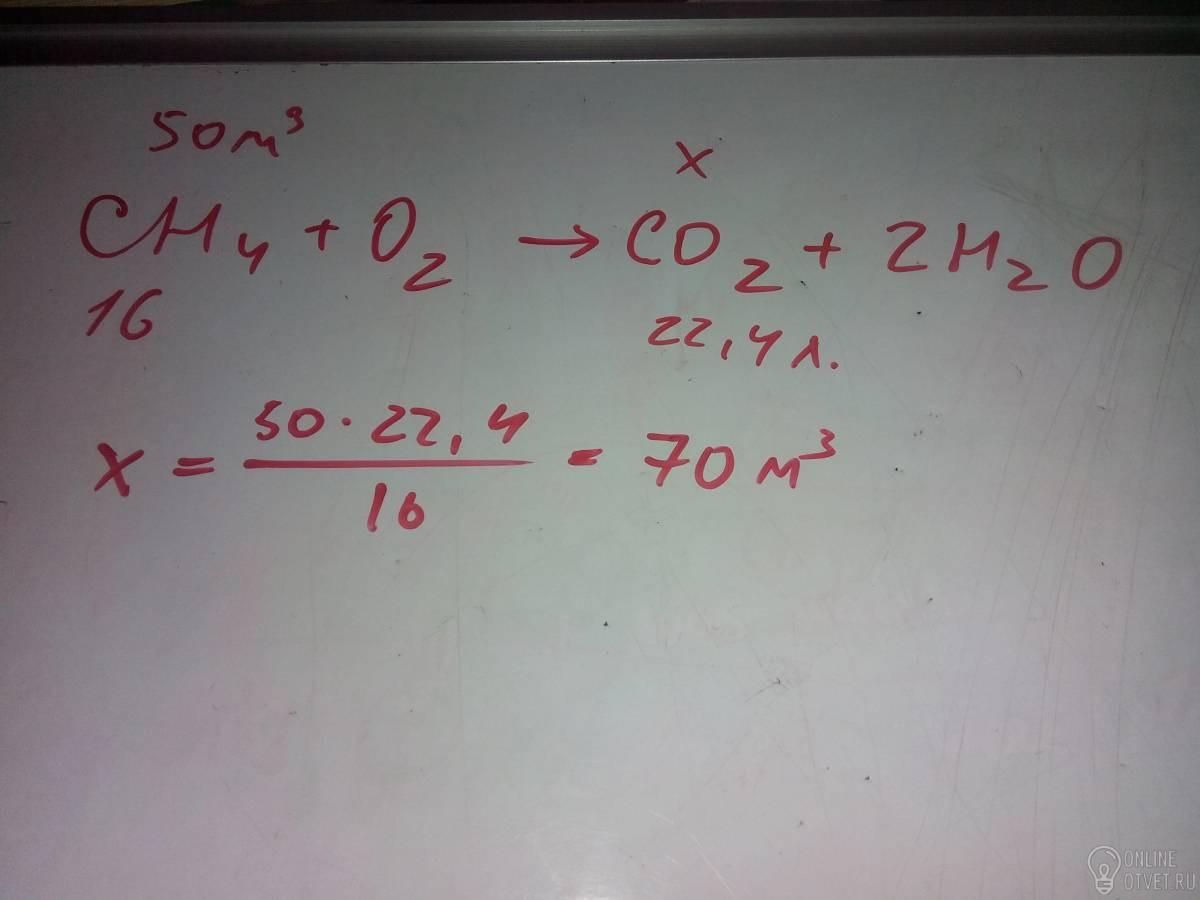 50м³
x
CH₄ + O₂ → CO₂ + 2H₂O
16 22,4 л.
x = 50·22,4 / 16 = 70 м³
ONLINE
OTVET.RU